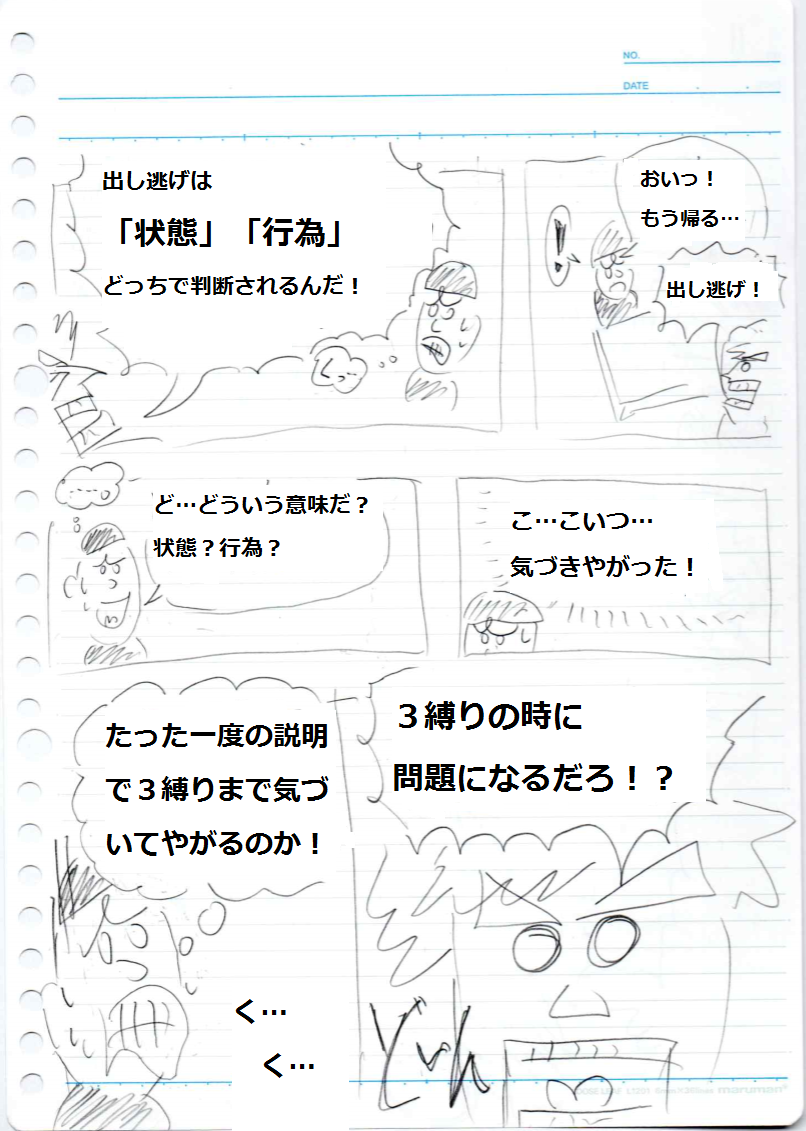 NO.
DATE
おいっ！
もう帰る…
！
出し逃げ！
出し逃げは
「状態」「行為」
どっちで判断されるんだ！
くっ…
こ…こいつ…
気づきやがった！
……
ど…どういう意味だ？
状態？行為？
３縛りの時に
問題になるだろ！？
どーん
たった一度の説明
で３縛りまで気づ
いてやがるのか！
く…
く…
maruman